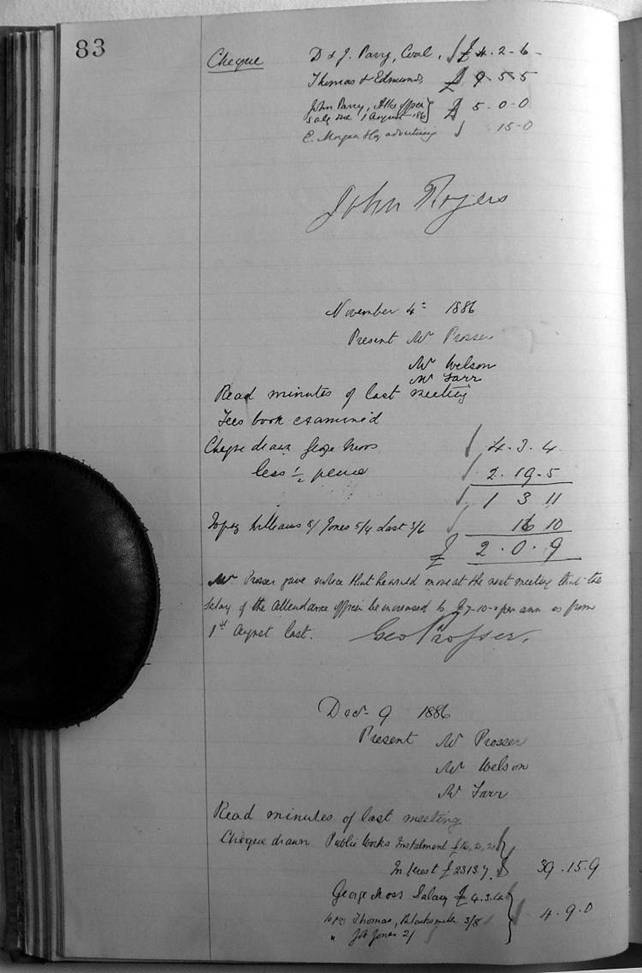 83
Cheque D & J. Parry, Coal, £4.2-6-
Thomas & Edmunds £ 9.5-5
John Parry, Atts officer £ 5-0-0
Saly due 1 August 1886
E. Morgan Hay advertising 15-0
John Rogers
November 4th 1886
Present Mr Prosser
Mr Welson
Mr Farr
Read minutes of last meeting
Fees book examined
Cheque drawn George Moss 4.3.4.
less ½ pence 2.19.5
1 3 11
Williams 5/ Jones 5/4 Last 16 10
£ 2.0.9
Mr Prosser gave notice that he would move at the next meeting that the
Salary of the Attendance Officer be increased to £7-10-0 per ann as from
1st August last. Geo Prosser.
Dec- 9 1886
Present Mr Prosser
Mr Welson
Mr Farr
Read minutes of last meeting
Cheque drawn Public Works Instalment
Interest £ 39.15.9
George Moss Salary £4.3.4
Thomas, Blacksmith 3/8 4.9.0
" Jones 2/